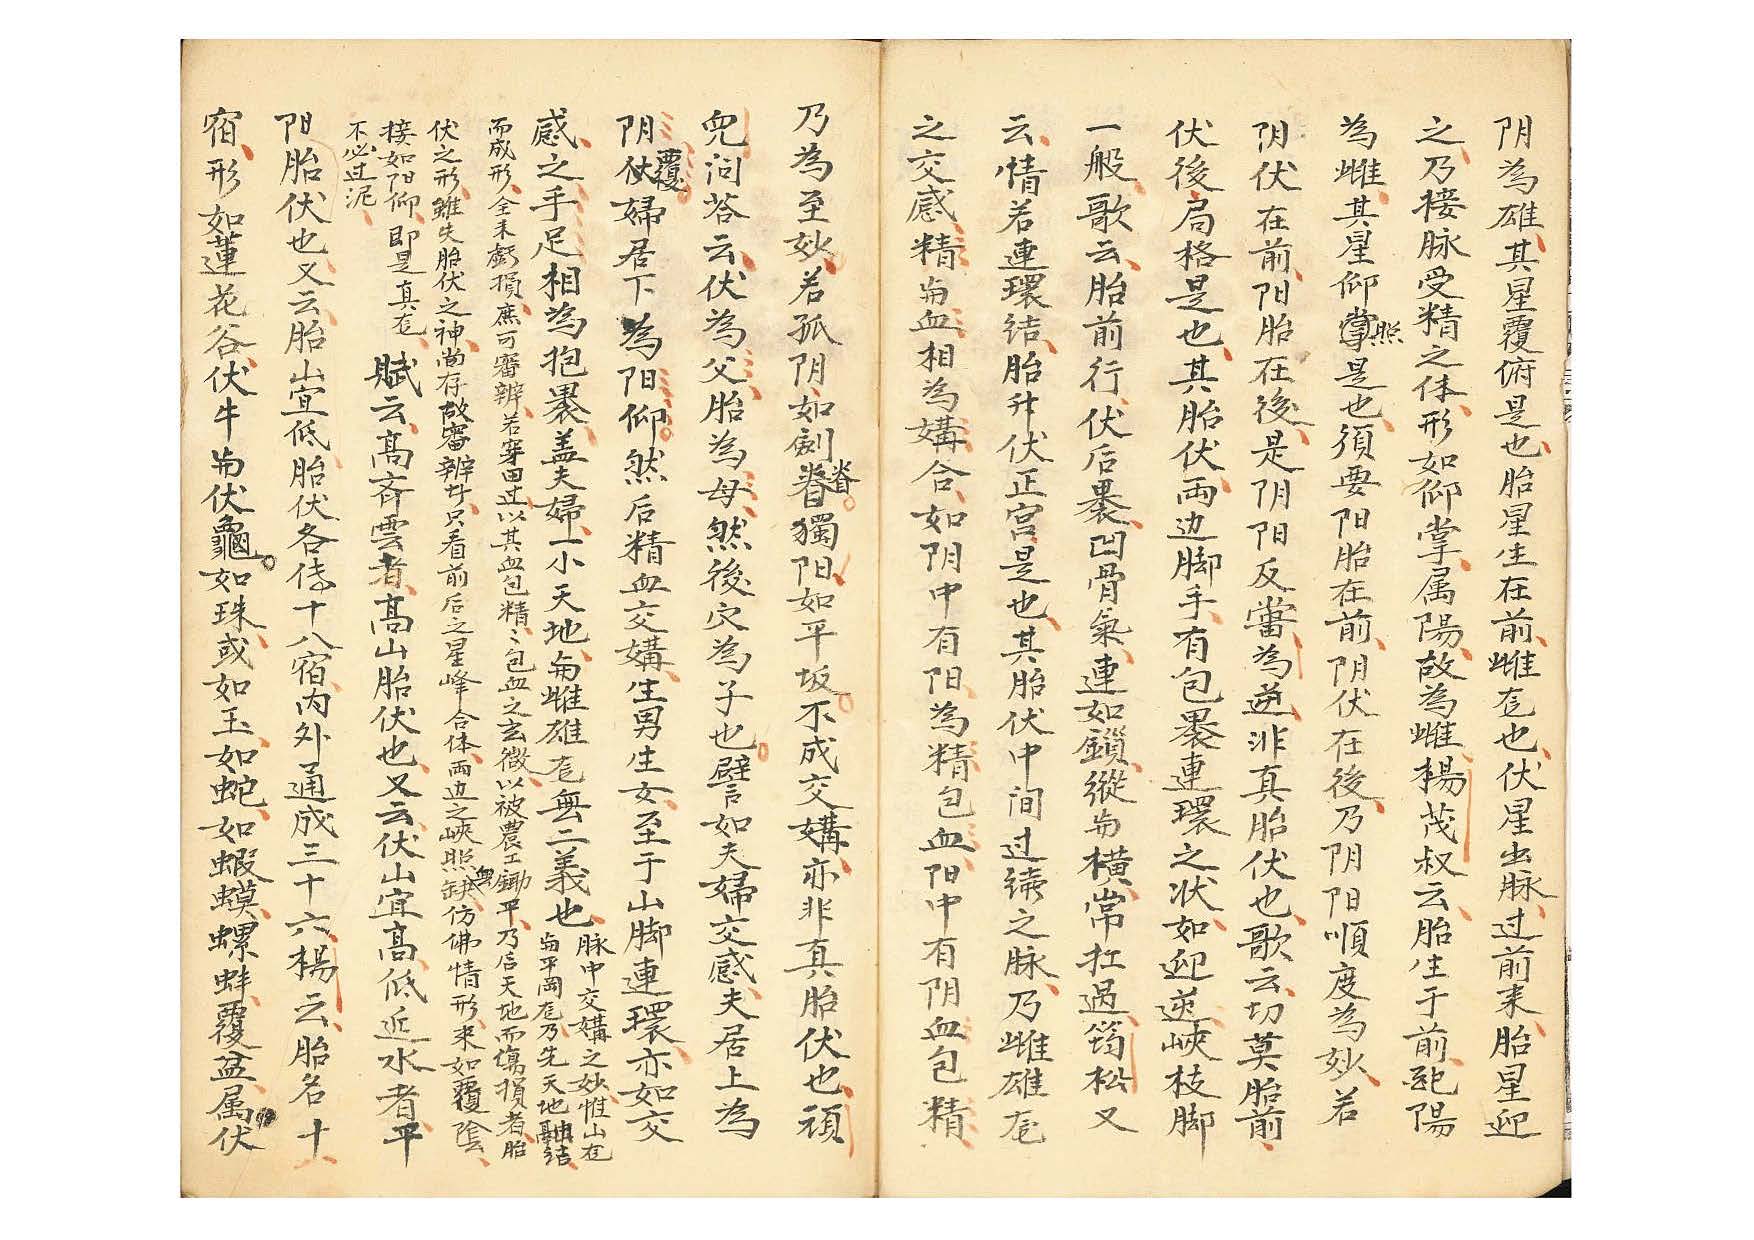 阴為雄其星覆俯是也胎星生在前雌龙也伏星出脉过前来胎星迎
之乃接脉受精之体形如仰掌属陽故為雌楊茂叔云胎生于前純陽
為雌其星仰掌照是也須要阳胎在前阴伏在後乃阴阳順度為妙若
阴伏在前阳胎在後是阴阳反當為逆非真胎伏也歌云切莫胎前
伏後局格是也其胎伏両边脚手有包裹連環之状如迎逆峽枝脚
一般歌云胎前行伏后裹凹骨氣連如鎖縱与横常扛過筠松又
云情若連環结胎并伏正宫是也其胎伏中间过续之脉乃雌雄龙
之交感精与血相為媾合如阴中有阳為精包血阳中有阴血包精
乃為至妙若孤阴如劍脊獨阳如平坂不成交媾亦非真胎伏也頑
皃问荅云伏為父胎為母然後穴為子也譬如夫婦交感夫居上為
阴伏覆婦居下為阳仰然后精血交媾生男生女至于山脚連環亦如交
感之手足相為抱裹盖夫婦一小天地与雌雄龙無二義也
脉中交媾之妙惟山龙
与平岡龙乃先天地融结
而成形全未虧損庶可審辨若穿田过以其血包精〻包血之玄微以被農工鋤平乃后天地而傷損者胎
伏之形雖失胎伏之神尚存故審辨廿只看前后之星峰合体両边之峽照無缺仿佛情形来如覆陰
接如阳仰即是真龙
不必过泥
賦云高斉雲者高山胎伏也又云伏山宜高低近水者平
阳胎伏也又云胎山宜低胎伏各俻十八宿内外通成三十六楊云胎名十
宿形如蓮花谷伏牛与伏龜如珠或如玉如蛇如蝦蟆螺蚌覆盆属伏